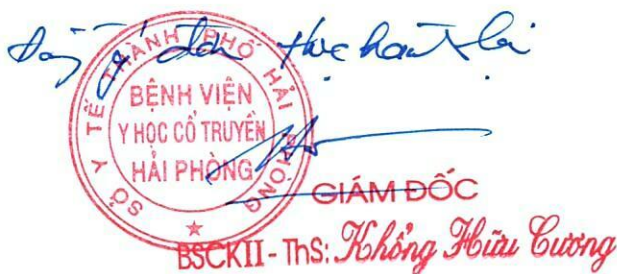 Đồng ý cho thực hành tại
SỞ Y TẾ THÀNH PHỐ HẢI PHÒNG
BỆNH VIỆN
Y HỌC CỔ TRUYỀN
HẢI PHÒNG
GIÁM ĐỐC
BSCKII - ThS: Khổng Hữu Cường